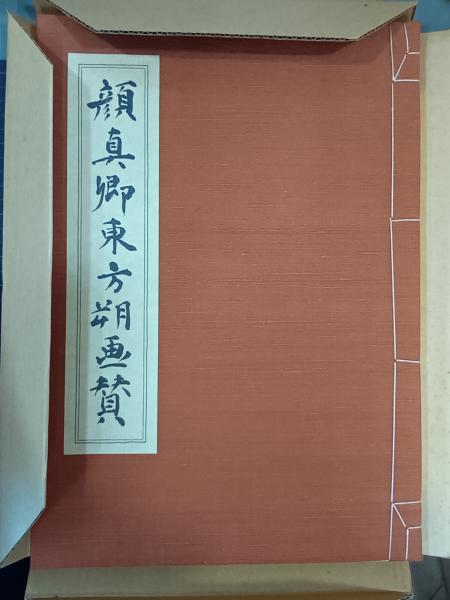 顔真卿東方朔画賛